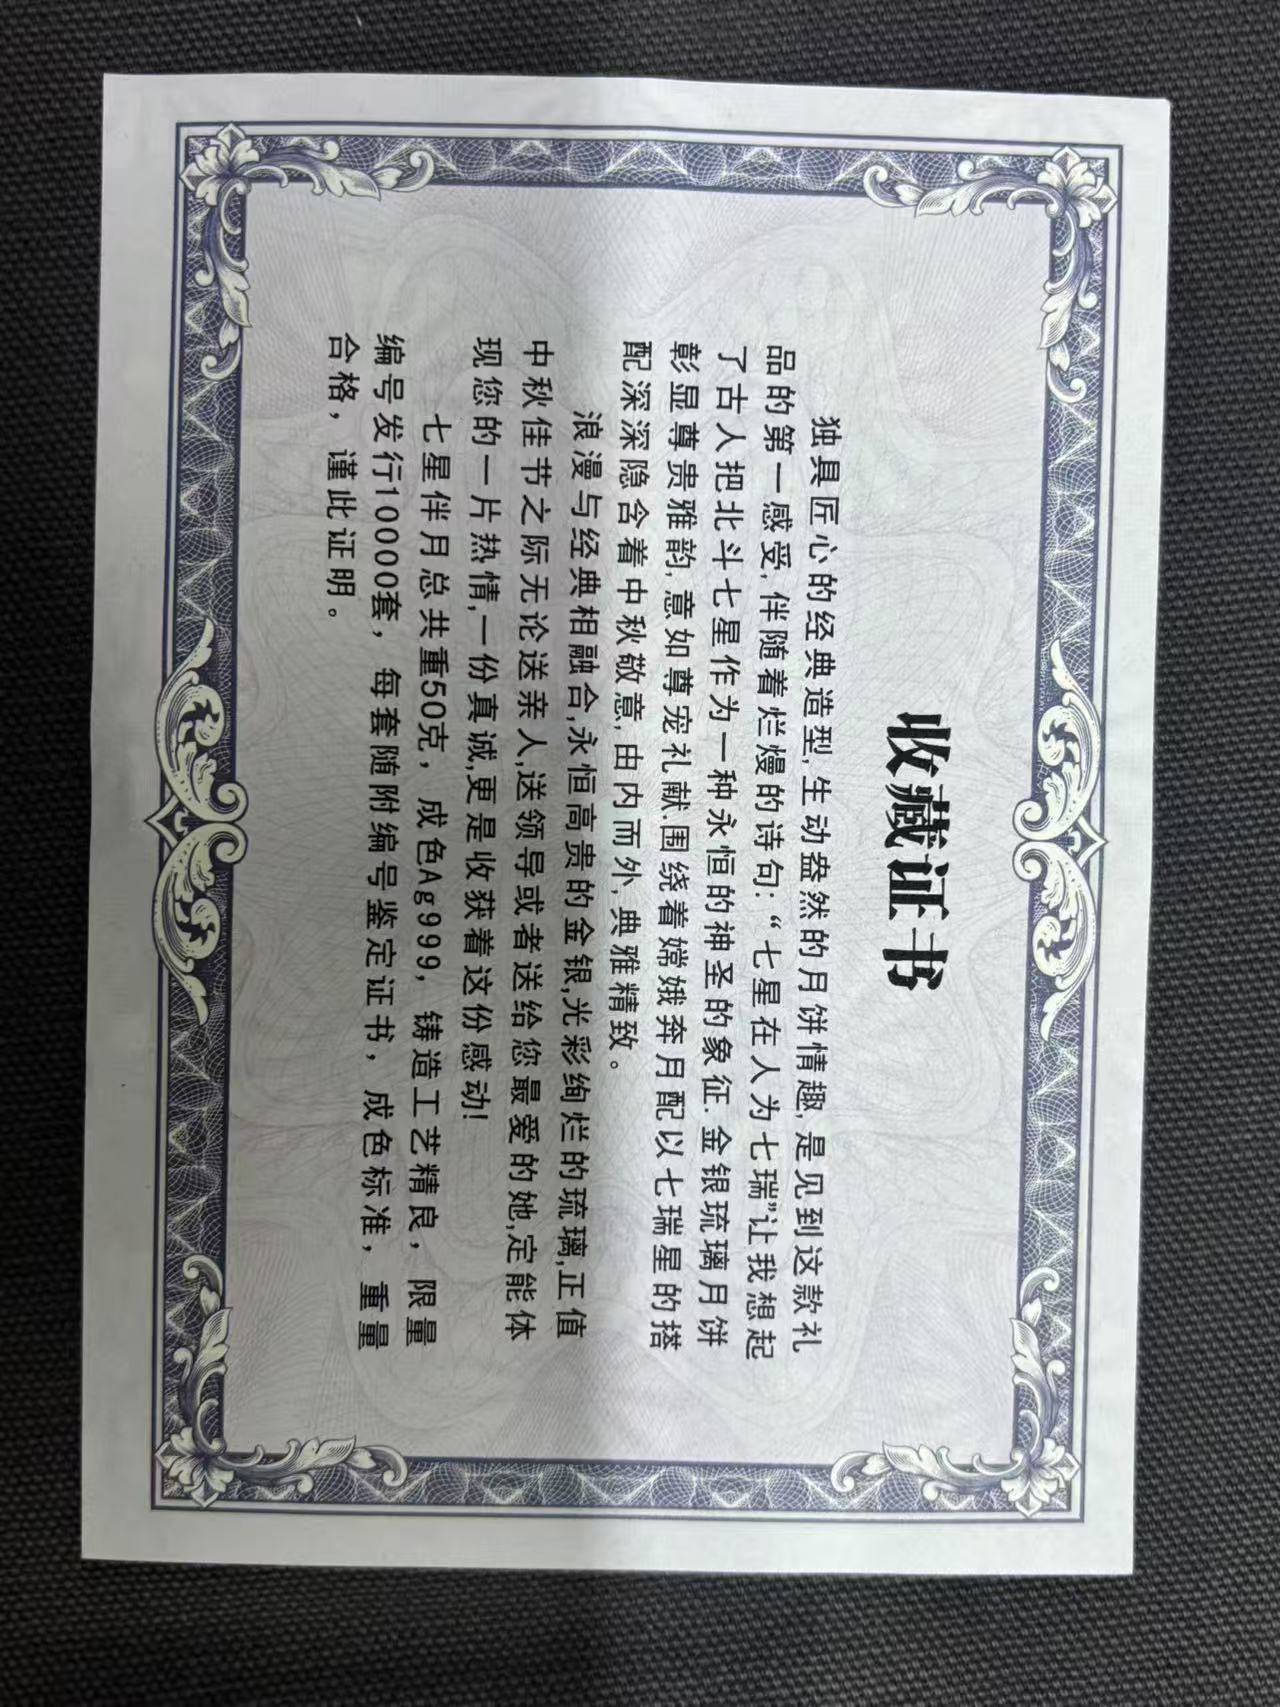 收藏证书
独具匠心的经典造型,生动盎然的月饼情趣,是见到这款礼
品的第一感受,伴随着烂熳的诗句:“七星在人为七瑞”让我想起
了古人把北斗七星作为一种永恒的神圣的象征.金银琉璃月饼
彰显尊贵雅韵,意如尊宠礼献.围绕着嫦娥奔月配以七瑞星的搭
配深深隐含着中秋敬意,由内而外,典雅精致。
浪漫与经典相融合,永恒高贵的金银,光彩绚烂的琉璃,正值
中秋佳节之际无论送亲人,送领导或者送给您最爱的她,定能体
现您的一片热情,一份真诚,更是收获着这份感动!
七星伴月总共重50克，成色Ag999，铸造工艺精良，限量
编号发行10000套，每套随附编号鉴定证书，成色标准，重量
合格，谨此证明。